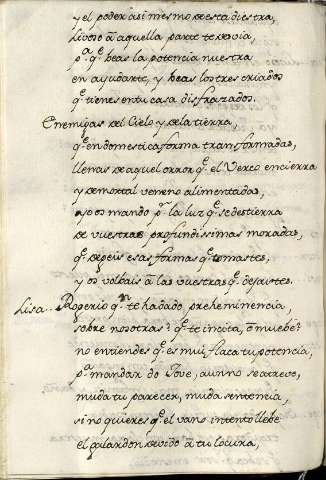 y el poder asi mesmo de esta diestra,
livose a aquella parte te desvia,
pª. qᵉ. beas la potencia nuestra
en ayudarte, y beas los tres criados
qᵉ tienes en tu casa disfrazados.
Enemigas del Cielo y de la tierra,
qᵉ en domestica forma transformadas,
llenas de aquel oxror qᵉ el Verco encierra
y de mortal veneno alimentadas,
yo os mando pʳ la luz qᵉ se destierra
de vuestras profundissimas moradas,
qᵉ dejeis esas formas qᵉ tomastes,
y os volbais a las vuestras qᵉ dejastes.
Lisa.. Rogerio qⁿ te ha dado, preheminencia,
sobre nosotras? qᵉ te incita, o muebe?
no entiendes qᵉ es mui flaca tu potencia,
pª mandar do Jove, aun no se atreve,
muda tu parecer, muda sentencia,
si no quieres qᵉ el vano intento llebe
el galardon devido a tu locura,